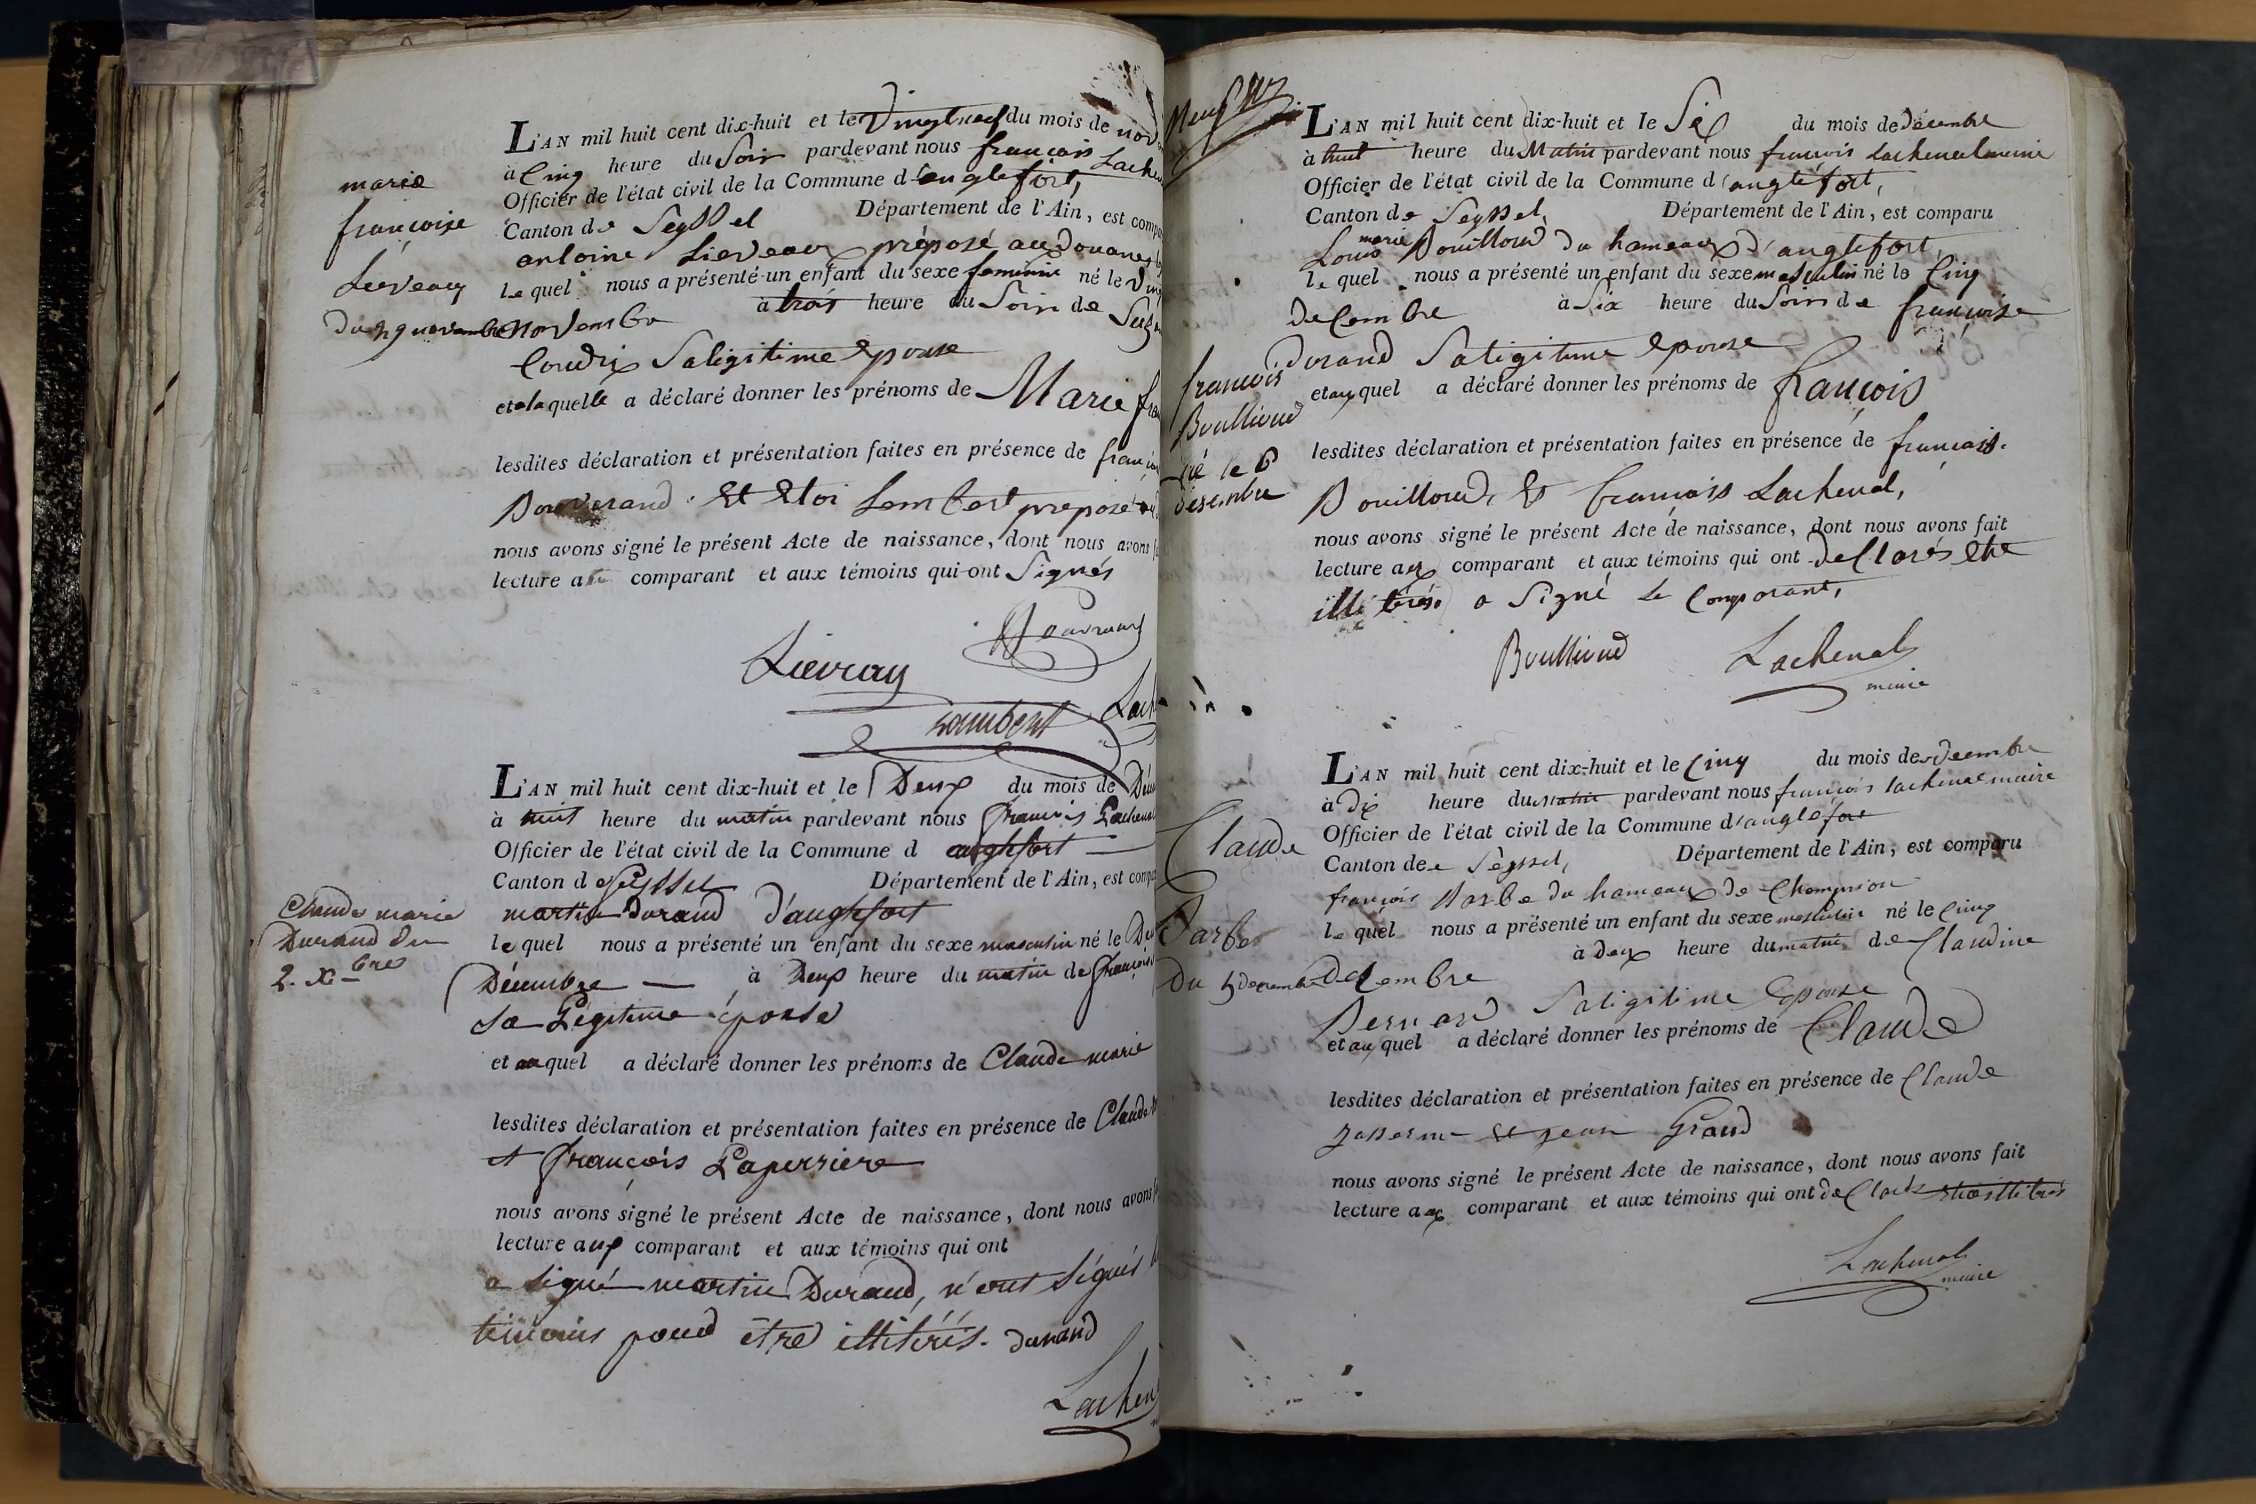 L'AN mil huit cent dix-huit et le Vingtneuf du mois de nov
à Cinq heure du Soir pardevant nous françois Lachen
Officier de l'état civil de la Commune d'anglefort,
Canton de Seyssel Département de l'Ain, est compa
antoine Lieveaux préposé au douanes
lequel nous a présenté un enfant du sexe feminin né le Vin
novembre à trois heure du Soir de Suz
Coudrix Saligitime Epouse
et a laquelle a déclaré donner les prénoms de Marie fra
lesdites déclaration et présentation faites en présence de fran
Bouverand Et Eloi Lembert preposé
nous avons signé le présent Acte de naissance, dont nous avons
lecture au comparant et aux témoins qui ont Signés
marie
françoise
Lieveaux
Du 29 novembre
Lievraux
Lambert
Lach
L'AN mil huit cent dix-huit et le Deux du mois de Déce
à huit heure du matin pardevant nous françois Lachenal
Officier de l'état civil de la Commune d anglefort
Canton de Seyssel Département de l'Ain, est compa
martin Durand d'anglefort
lequel nous a présenté un enfant du sexe masculin né le Deu
Décembre à Deux heure du matin de françois
Sa Légitime épouse
et auquel a déclaré donner les prénoms de Claude marie
lesdites déclaration et présentation faites en présence de Claude
et françois Laperriere
nous avons signé le présent Acte de naissance, dont nous avons
lecture aux comparant et aux témoins qui ont
a signé martin Durand, n'ont Signés
témoins pour être illitérés. durand
Lachen
Claude marie
Durand du
2. Xbre
L'AN mil huit cent dix-huit et le Six du mois de décembre
à huit heure du Matin pardevant nous françois Lachenal maire
Officier de l'état civil de la Commune d'anglefort,
Canton de Seyssel, Département de l'Ain, est comparu
Louis marie Bouilloud du hameaux d'anglefort
lequel nous a présenté un enfant du sexe masculin né le Cinq
DeCembre à Six heure du Soir de françoise
Durand Saligitime Epouse
et auquel a déclaré donner les prénoms de françois
lesdites déclaration et présentation faites en présence de françois
Bouilloud, Et francois Lachenal,
nous avons signé le présent Acte de naissance, dont nous avons fait
lecture aux comparant et aux témoins qui ont déClarés Etre
illitérés. a Signé Le Comparant,
Boullioud Lachenal
maire
françois
Boullioud
né le 6
désembre
L'AN mil huit cent dix-huit et le Cinq du mois de décembre
à Dix heure du matin pardevant nous françois lachenal maire
Officier de l'état civil de la Commune d'anglefort
Canton de Seyssel, Département de l'Ain, est comparu
françois Barbe du hameaux de Champrion
lequel nous a présenté un enfant du sexe masculin né le Cinq
DeCembre à Deux heure du matin de Claudine
Bernard Saligitime Epouse
et auquel a déclaré donner les prénoms de Claude
lesdites déclaration et présentation faites en présence de Claude
et jean Grand
nous avons signé le présent Acte de naissance, dont nous avons fait
lecture aux comparant et aux témoins qui ont déClarés etre illitérés
Lachenal
maire
Claude
Barbe
Du 5 decembre